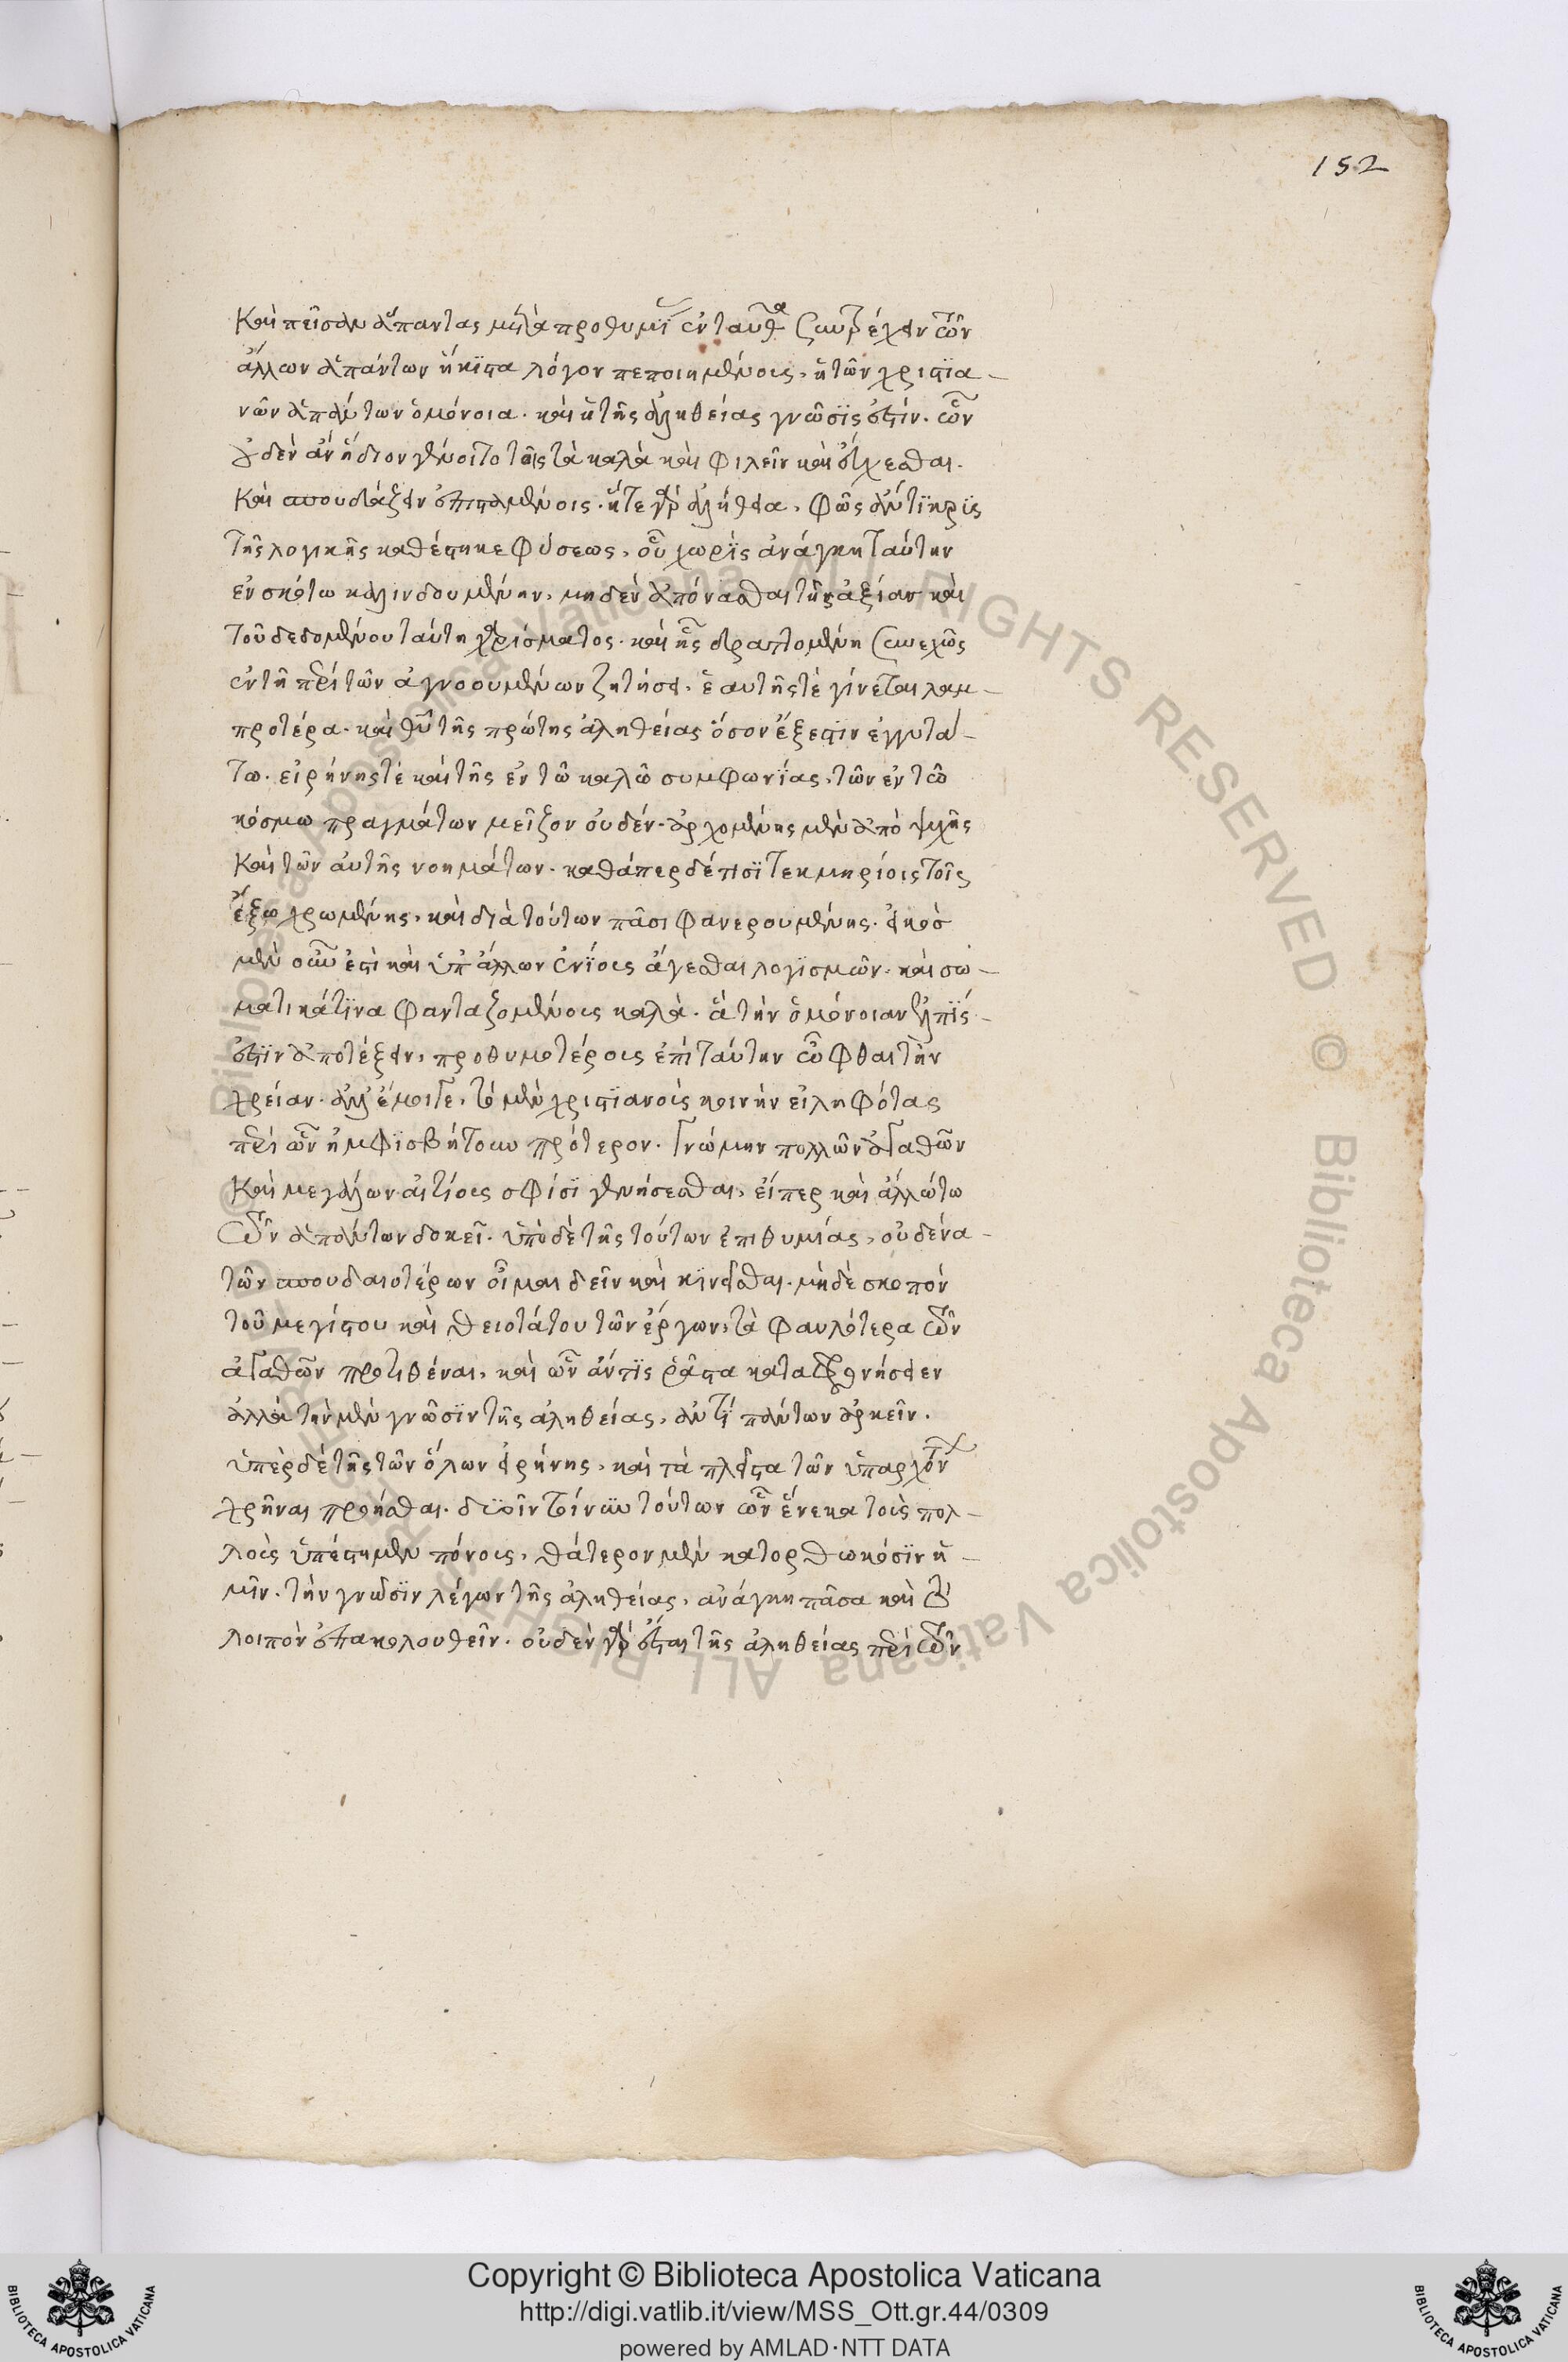 152
καὶ πεῖσαν ἅπαντας μετὰ προθυμί ἐνταῦθα συντρέχειν τῶν
ἄλλων ἁπάντων ἥκιστα λόγον πεποιημένοις, ἡ τῶν χριστια-
νῶν ἁπάντων ὁμόνοια. καὶ ἡ τῆς ἀληθείας γνῶσϊς ἐστίν. ὧν
οὐδὲν ἂν ἥδιον γένοιτο τοῖς τὰ καλὰ καὶ φιλεῖν καὶ εὔχεσθαι.
καὶ σπουδάζειν ἐπισταμένοις. ἥτε γὰρ ἀλήθεια, φῶς ἄντϊκρϊς
τῆς λογικῆς καθέστηκε φύσεως, οὗ χωρὶς ἀνάγκη ταύτην
ἐν σκότω καλινδουμένην, μηδὲν ἀπόνασθαι τῆς ἀξίας καὶ
τοῦ δεδομένου ταύτη χαρίσματος. καὶ ἧς ἀεὶ συνεχῶς
ἐν τῆ περὶ τῶν ἀγνοουμένων ζητήσει. ἑαυτῆς τὲ γίνεται λαμ-
προτέρα. καὶ θεῦ τῆς πρώτης ἀληθείας ὅσον ἔξεστιν ἐγγυτά-
τω. εἰρήνης τὲ καὶ τῆς ἐν τῶ καλῶ συμφωνίας, τῶν ἐν τῶ
κόσμω πραγμάτων μεῖζον οὐδέν. ἀρχομένης μὲν ἀπὸ ψυχῆς
καὶ τῶν αὐτῆς νοημάτων. καθάπερ δέ τισϊ τεκμηρίοις τοῖς
ἔξω χρωμένης, καὶ διὰ τούτων πᾶσι φανερουμένης. εἰκὸς
μὲν οὖν ἐστὶ καὶ ὑπ' ἄλλων ἐνίοις ἄγεσθαι λογϊσμῶν. καὶ σω-
ματικά τϊνα φανταζομένοις καλὰ. ἃ τὴν ὁμόνοιαν ἐλπίς
ἐστϊν ἀποτέξειν, προθυμοτέροις ἐπὶ ταύτην ὦφθαι τὴν
χρείαν. ἀλλ' ἔμοιγε, τὸ μὲν χριστϊανοὺς κοινὴν εἰληφότας
περὶ ὧν ἠμφϊσβήτουν πρότερον. γνώμην πολλῶν ἀγαθῶν
καὶ μεγάλων αἰτίοις σφίσϊ γενήσεσθαι, εἴπερ καὶ ἄλλό τω
τῶν ἁπάντων δοκεῖ. ὑπὸ δὲ τῆς τούτων ἐπιθυμίας, οὐδένα-
τῶν σπουδαιοτέρων οἶμαι δεῖν καὶ κϊνεῖσθαι. μηδὲ σκοπὸν
τοῦ μεγίστου καὶ θειοτάτου τῶν ἔργων, τὰ φαυλότερα τῶν
ἀγαθῶν προτιθέναι, καὶ ὧν ἄν τϊς ῥᾶστα καταφρονήσειεν
ἀλλὰ τὴν μὲν γνῶσϊν τῆς ἀληθείας, ἀντὶ πάντων ἀρκεῖν.
ὑπὲρ δὲ τῆς τῶν ὅλων εἰρήνης, καὶ τὰ πλεῖστα τῶν ὑπαρχόντ
χρῆναι προέσθαι. δυοῖν τοίνυν τούτων ὧν ἕνεκα τοὺς πολ-
λοὺς ὑπέστημεν πόνους, θάτερον μὲν κατορθωκόσϊν ἡ-
μῖν. τὴν γνῶσϊν λέγων τῆς ἀληθείας, ἀνάγκη πᾶσα καὶ τὸ
λοιπὸν ἐπακολουθεῖν. οὐδὲν γὰρ ἔσται τῆς ἀληθείας περὶ τῶν
Copyright © Biblioteca Apostolica Vaticana
http://digi.vatlib.it/view/MSS_Ott.gr.44/0309
powered by AMLAD·NTT DATA